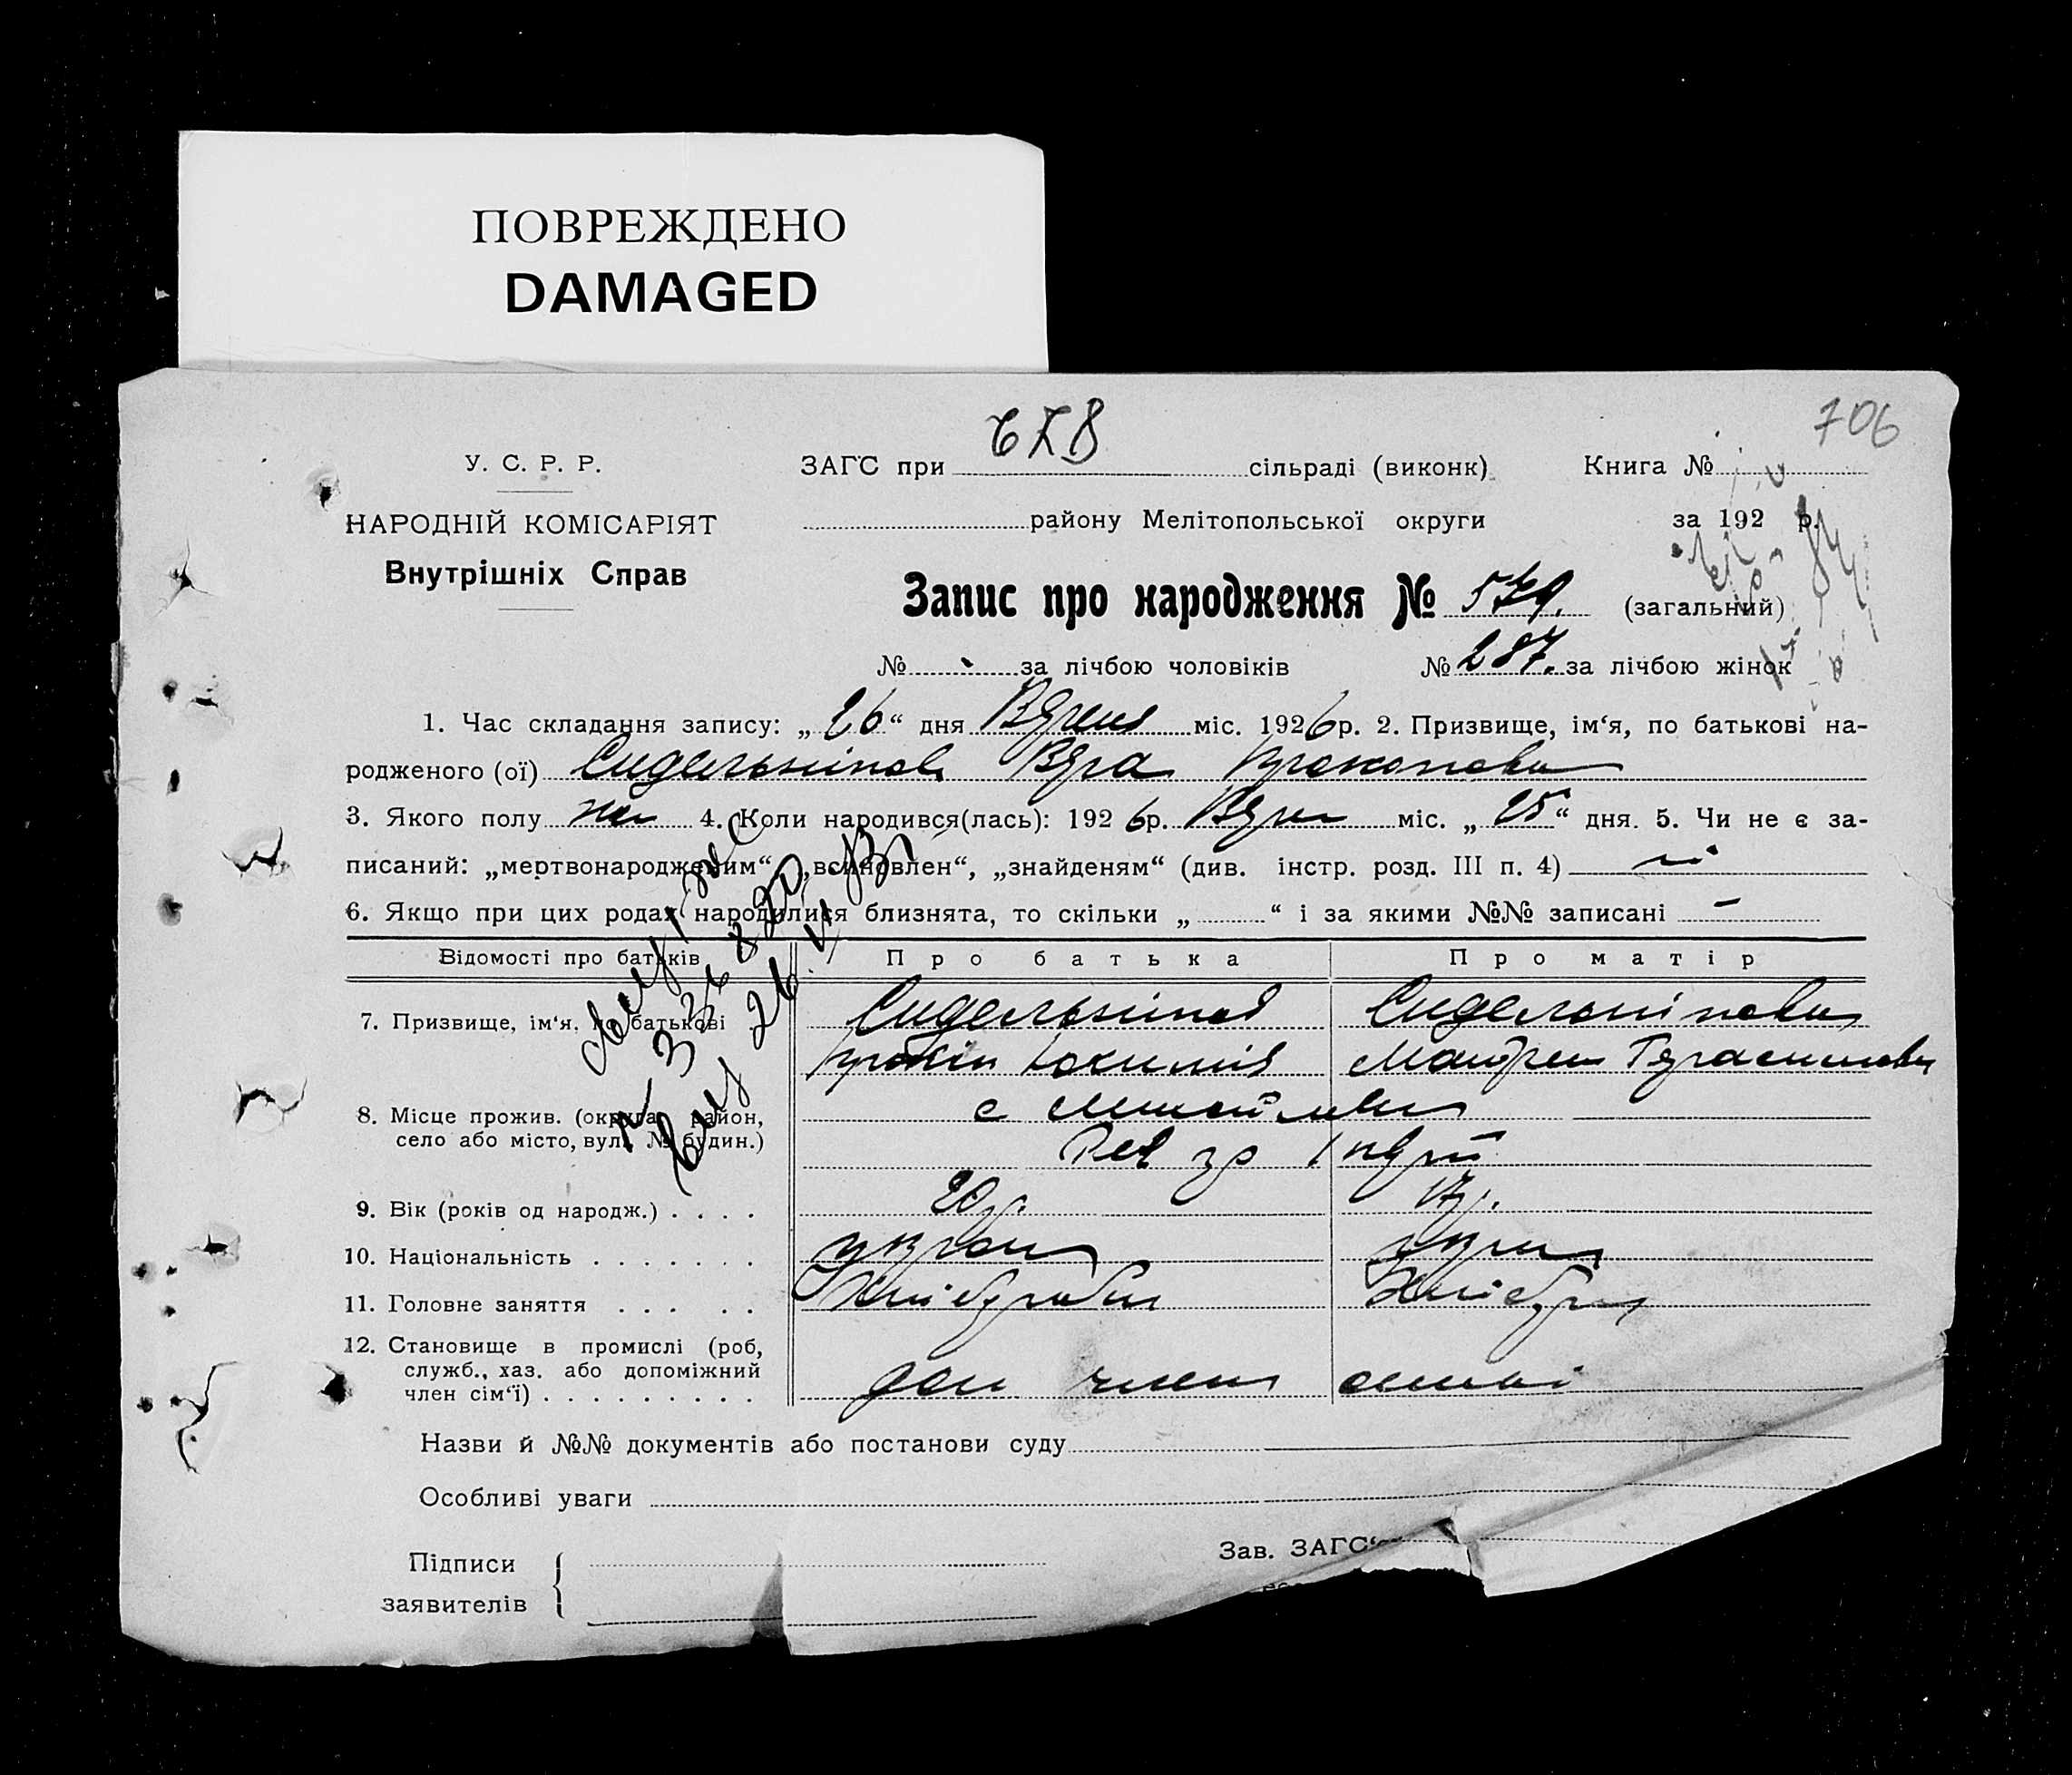 ПОВРЕЖДЕНО
DAMAGED
706
У. С. Р. Р.
НАРОДНІЙ КОМІСАРІЯТ
Внутрішніх Справ
ЗАГС при сільраді (виконк) Книга №
району Мелітопольської округи за 192 р.
Запис про народження № 579. (загальний)
№ за лічбою чоловіків № 287. за лічбою жінок
1. Час складання запису: „ 26 “ дня Вэреня міс. 1926 р. 2. Призвище, ім‘я, по батькові на-
родженого (ої) Сидельнікова Вэра Прокоповна
3. Якого полу жін 4. Коли народився(лась): 1926 р. Вэрен міс. „ 25 “ дня. 5. Чи не є за-
писаний: „мертвонародженим“ „всиновлен“, „знайденям“ (див. інстр. розд. III п. 4) ні
6. Якщо при цих родах народилися близнята, то скільки „ “ і за якими №№ записані —
Відомості про батьків Про батька Про матір
7. Призвище, ім‘я, по батькові Сидельніков Сидельнікова
Прокіп Юхимів Мотрен Гэрасимовна
8. Місце прожив. (округа, район, с
село або місто, вул. № будин.)
9. Вік (років од народж.) . . . . 20 р. 17 р.
10. Національність . . . . . . . украин украин
11. Головне заняття . . . . . Хліборобст Хлібороб
12. Становище в промислі (роб,
служб., хаз. або допоміжний
член сім‘ї) . . . . . . . . . доп член симьі
Назви й №№ документів або постанови суду
Особливі уваги
Підписи Зав. ЗАГС‘
заявителів